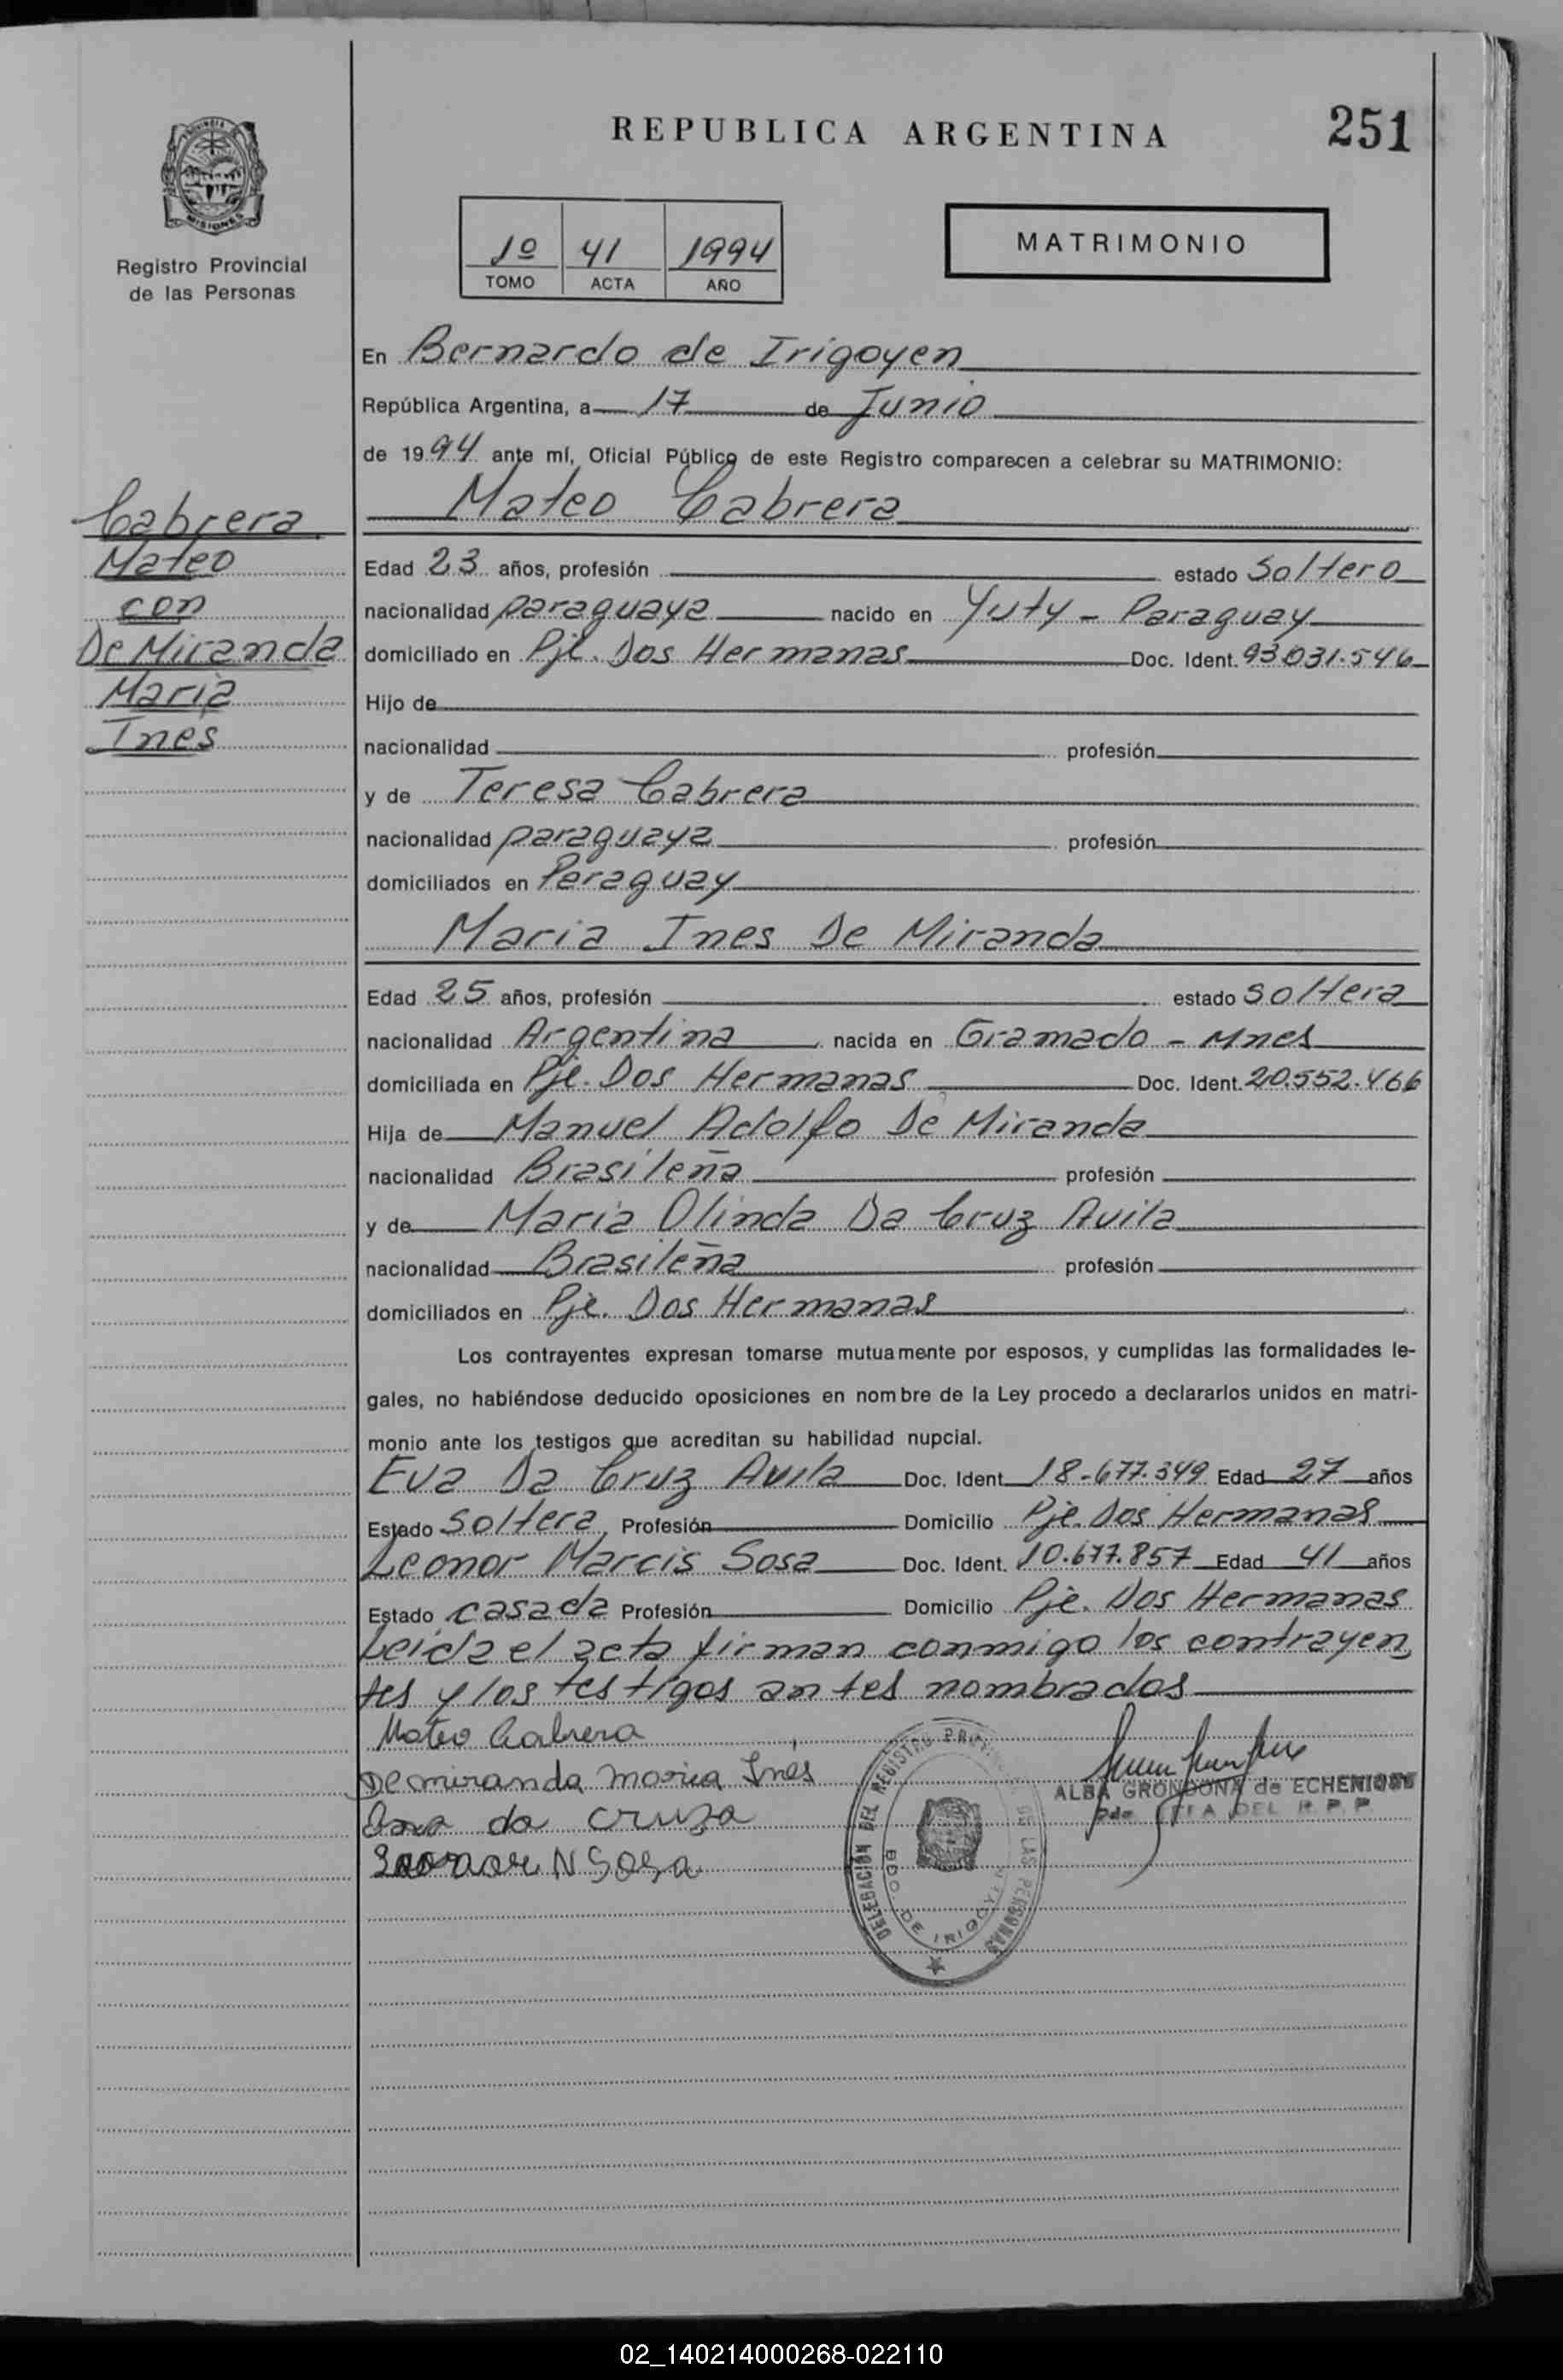 REPUBLICA ARGENTINA
251
PROVINCIA DE
MISIONES
Registro Provincial
de las Personas
1º 41 1994
TOMO ACTA AÑO
MATRIMONIO
En Bernardo de Irigoyen
República Argentina, a 17 de Junio
de 1994 ante mí, Oficial Público de este Registro comparecen a celebrar su MATRIMONIO:
Mateo Cabrera
Cabrera
Mateo
con
De Miranda
Maria
Ines
Edad 23 años, profesión estado Soltero
nacionalidad paraguaya nacido en Yuty - Paraguay
domiciliado en Pje. Dos Hermanas Doc. Ident. 93.031.546
Hijo de
nacionalidad profesión
y de Teresa Cabrera
nacionalidad paraguaya profesión
domiciliados en Paraguay
Maria Ines De Miranda
Edad 25 años, profesión estado soltera
nacionalidad Argentina nacida en Gramado - Mnes
domiciliada en Pje. Dos Hermanas Doc. Ident. 20.552.466
Hija de Manuel Adolfo De Miranda
nacionalidad Brasileña profesión
y de Maria Olinda Da Cruz Avila
nacionalidad Brasileña profesión
domiciliados en Pje. Dos Hermanas
Los contrayentes expresan tomarse mutuamente por esposos, y cumplidas las formalidades le-
gales, no habiéndose deducido oposiciones en nombre de la Ley procedo a declararlos unidos en matri-
monio ante los testigos que acreditan su habilidad nupcial.
Eva Da Cruz Avila Doc. Ident. 18.677.349 Edad 27 años
Estado Soltera, Profesión Domicilio Pje. Dos Hermanas
Leonor Marcis Sosa Doc. Ident. 10.677.857 Edad 41 años
Estado casada Profesión Domicilio Pje. Dos Hermanas
Leida el acta firman conmigo los contrayen
tes y los testigos antes nombrados
Mateo Cabrera
De miranda Maria Inés
da cruza
N Sosa
DELEGACIÓN DEL REGISTRO PROVINCIAL DE LAS PERSONAS
BDO. DE IRIGOYEN
ALBA GRONDONA de ECHENIQUE
DEL R. P. P.
02_140214000268-022110